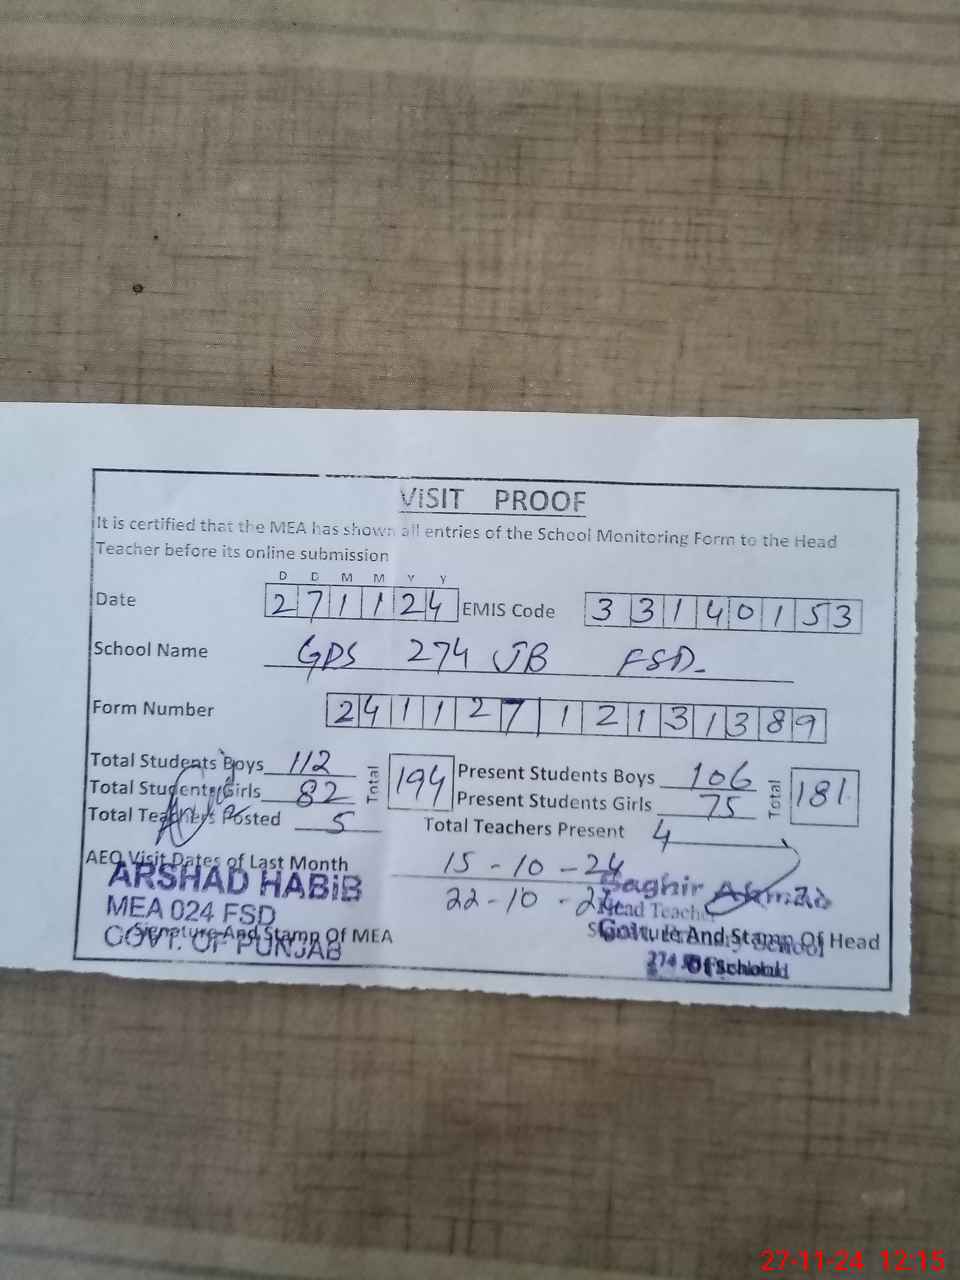 VISIT PROOF
It is certified that the MEA has shown all entries of the School Monitoring Form to the Head
Teacher before its online submission
D D M M Y Y
Date 271124 EMIS Code 33140153
School Name GPS 274 JB FSD-
Form Number 24112712131389
Total Students Boys 112 Total 194 Present Students Boys 106 Total 181
Total Students Girls 82 Present Students Girls 75
Total Teachers Posted 5 Total Teachers Present 4
AEO Visit Dates of Last Month 15-10-24
22-10-24
ARSHAD HABIB
MEA 024 FSD
GOVT. OF PUNJAB
Signature And Stamp Of MEA
Saghir Ahmad
Head Teacher
Signature And Stamp Of Head
Of School
27-11-24 12:15